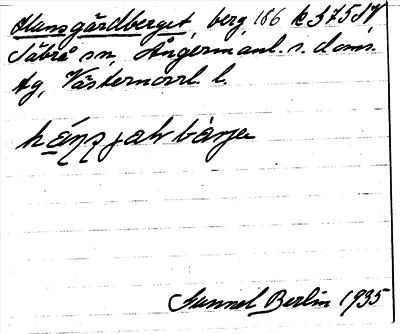 Hansgårdberget, berg, 186 k 375 SV
Säbrå sn, Ångermanl. s. doms.
tg, Västernorrl. l.
Gunnel Berlin 1935